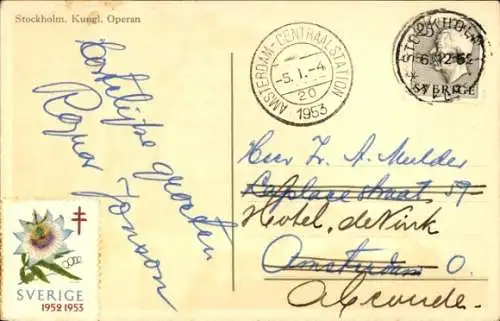 Stockholm. Kungl. Operan
Hartelijke groeten
Ragnar Jonson
AMSTERDAM-CENTRAALSTATION
-5.1.-4
20
1953
STOCKHOLM
6.12.52
SVERIGE
Heer Fr. A. Mulder
Laplacestraat 59
Hotel de Vink
Amsterdam O.
SVERIGE
1952 1953